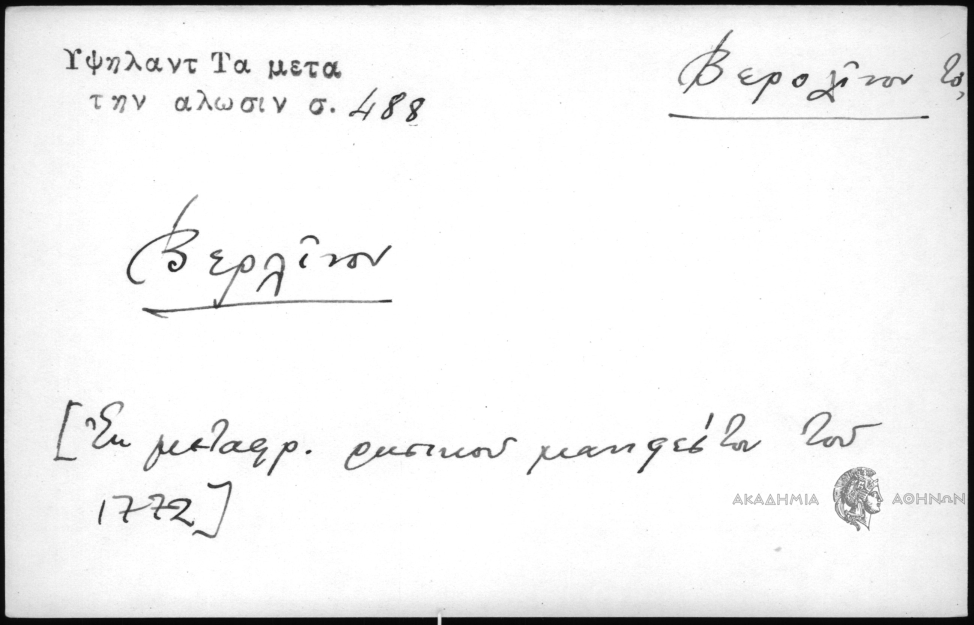 Υψηλαντ Τα μετα
την αλωσιν σ. 488
Βερολῖνον τό,
Βερλῖνον
[Ἐκ μεταφρ. ρωσικοῦ μανιφέστου τοῦ
1772]
ΑΚΑΔΗΜΙΑ ΑΘΗΝΩΝ